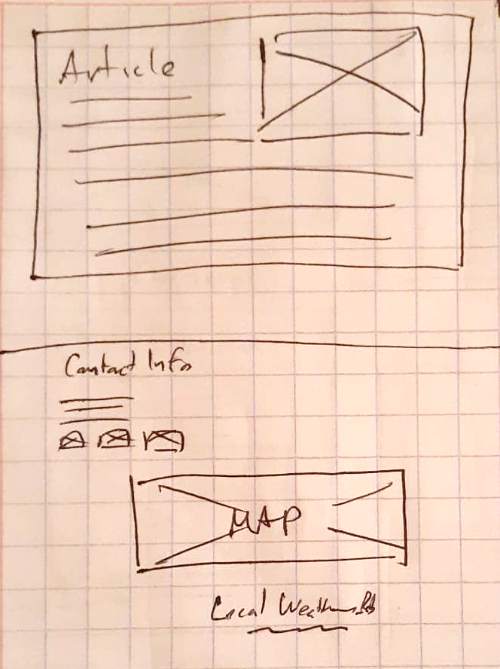 Article
Contact Info
MAP
Local Weather